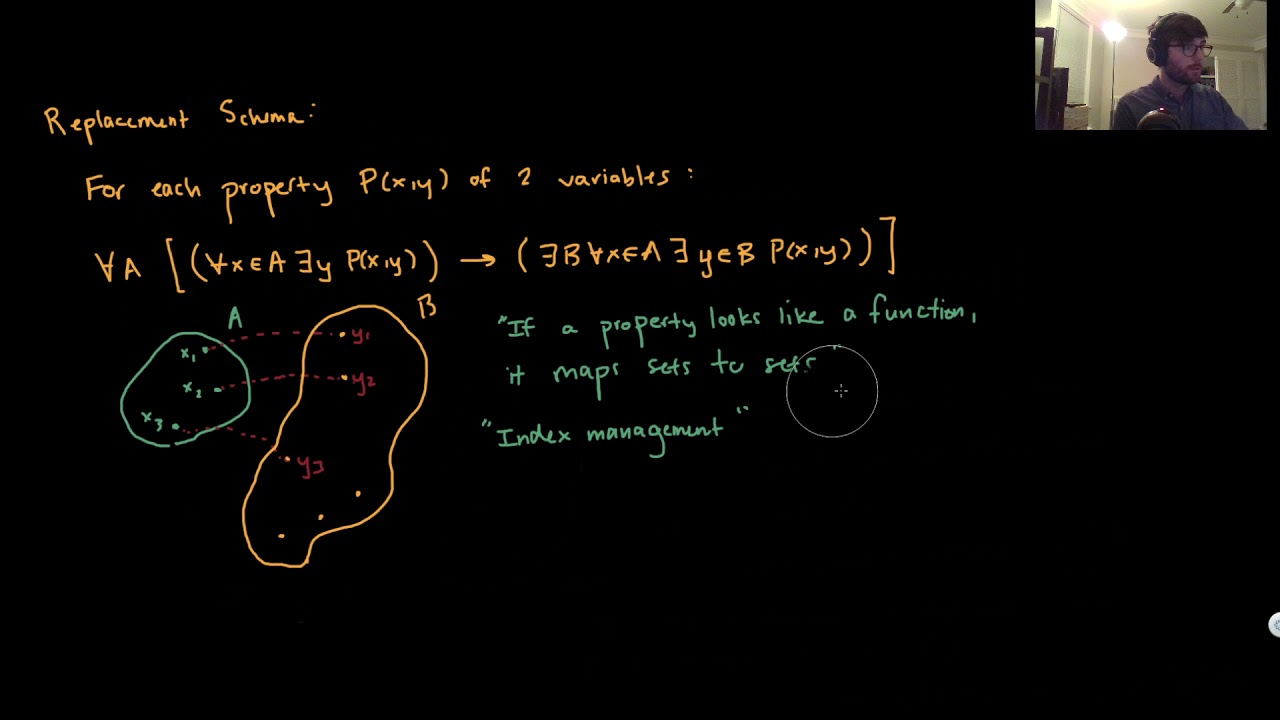 Replacement Schema:
For each property P(x,y) of 2 variables:
∀A [(∀x∈A ∃y P(x,y)) → (∃B ∀x∈A ∃y∈B P(x,y))]
A
B
x₁
y₁
x₂
y₂
x₃
y₃
"If a property looks like a function,
it maps sets to sets"
"Index management"